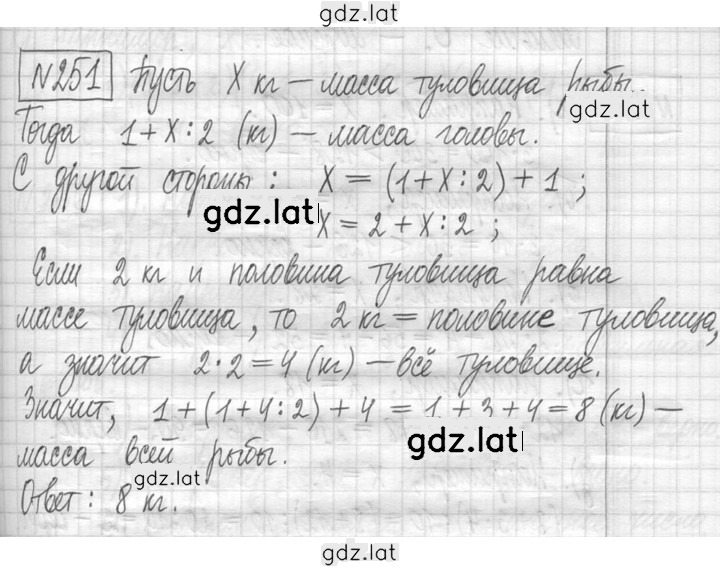 gdz.lat
№251 Пусть X кг – масса туловища рыбы.
gdz.lat
Тогда 1+X:2 (кг) – масса головы.
С другой стороны: X = (1+X:2)+1;
gdz.lat
X = 2+X:2;
Если 2 кг и половина туловища равна
массе туловища, то 2 кг = половине туловища,
а значит 2·2=4 (кг) – всё туловище.
Значит, 1+(1+4:2)+4 = 1+3+4=8 (кг) –
gdz.lat
масса всей рыбы.
gdz.lat
Ответ: 8 кг.
gdz.lat